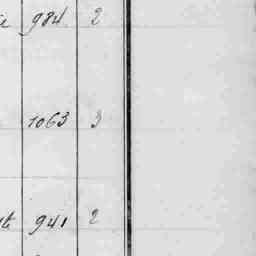 984 2
1063 3
941 2